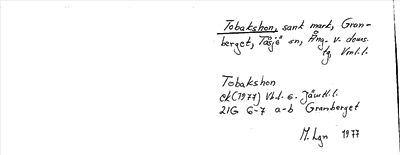 Tobakshon, sank mark, Gran-
berget, Tåsjö sn, Ång. v. doms.
tg, Vml.l.
Tobakshon
ek (1977) Vbd. 6. Jämtl.l.
21G 6-7 a-b Granberget
M. Lgn 1977